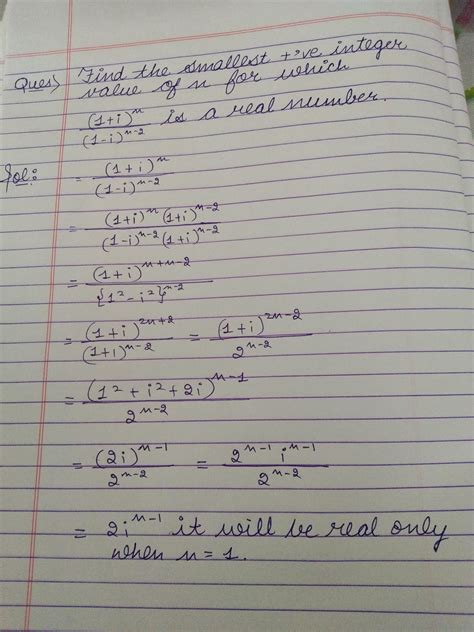 Ques) Find the smallest +'ve integer
value of n for which
(1+i)^n / (1-i)^(n-2) is a real number.
Sol: = (1+i)^n / (1-i)^(n-2)
= (1+i)^n (1+i)^(n-2) / (1-i)^(n-2) (1+i)^(n-2)
= (1+i)^(n+n-2) / {1² - i²}^(n-2)
= (1+i)^(2n+2) / (1+1)^(n-2) = (1+i)^(2n-2) / 2^(n-2)
= (1² + i² + 2i)^(n-1) / 2^(n-2)
= (2i)^(n-1) / 2^(n-2) = 2^(n-1) i^(n-1) / 2^(n-2)
= 2i^(n-1) it will be real only
when n = 1.